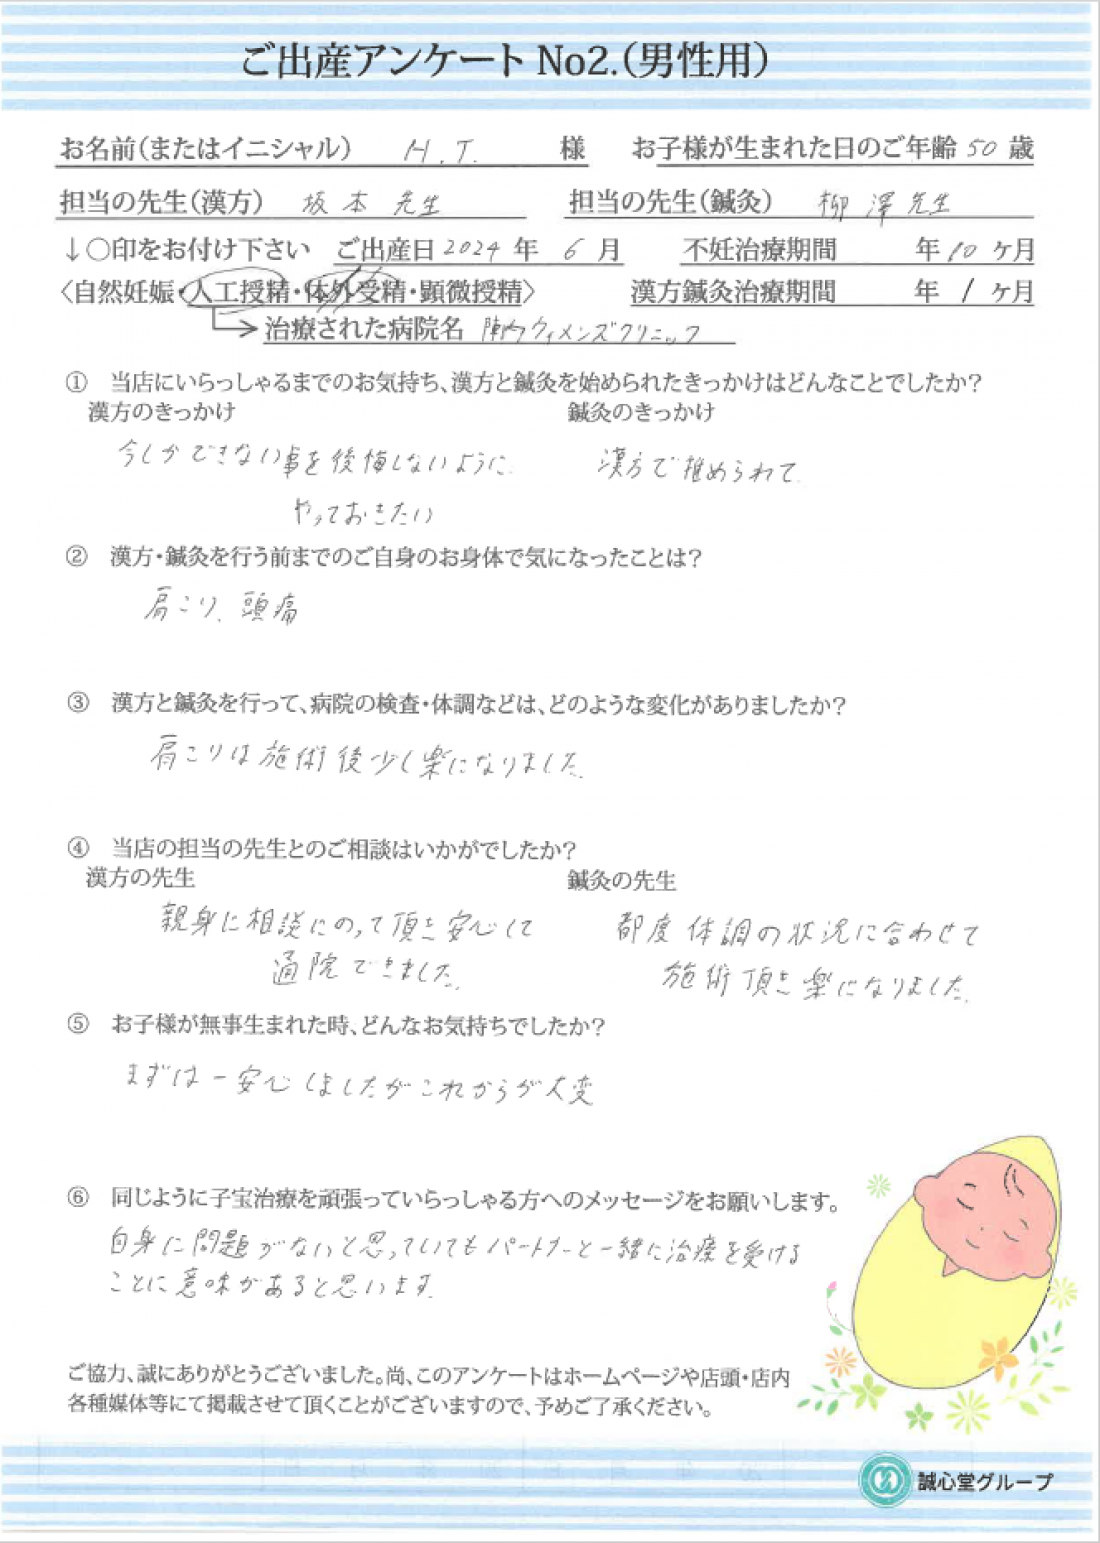 ご出産アンケート No2.(男性用)
お名前(またはイニシャル) H.T. 様 お子様が生まれた日のご年齢 50 歳
担当の先生(漢方) 坂本先生 担当の先生(鍼灸) 柳澤先生
↓〇印をお付け下さい ご出産日 2024 年 6 月 不妊治療期間 年 10 ヶ月
〈自然妊娠・人工授精・体外受精・顕微授精〉 漢方鍼灸治療期間 年 1 ヶ月
治療された病院名 陣内ウィメンズクリニック
① 当店にいらっしゃるまでのお気持ち、漢方と鍼灸を始められたきっかけはどんなことでしたか?
漢方のきっかけ 鍼灸のきっかけ
今しかできない事を後悔しないように 漢方で推められて
やっておきたい
② 漢方・鍼灸を行う前までのご自身のお身体で気になったことは?
肩こり、頭痛
③ 漢方と鍼灸を行って、病院の検査・体調などは、どのような変化がありましたか?
肩こりは施術後少し楽になりました。
④ 当店の担当の先生とのご相談はいかがでしたか?
漢方の先生 鍼灸の先生
親身に相談にのって頂き安心して 都度体調の状況に合わせて
通院できました。 施術頂き楽になりました。
⑤ お子様が無事生まれた時、どんなお気持ちでしたか?
まずは一安心しましたがこれからが大変
⑥ 同じように子宝治療を頑張っていらっしゃる方へのメッセージをお願いします。
自身に問題がないと思っていてもパートナーと一緒に治療を受ける
ことに意味があると思います。
ご協力、誠にありがとうございました。尚、このアンケートはホームページや店頭・店内
各種媒体等にて掲載させて頂くことがございますので、予めご了承ください。
誠心堂グループ